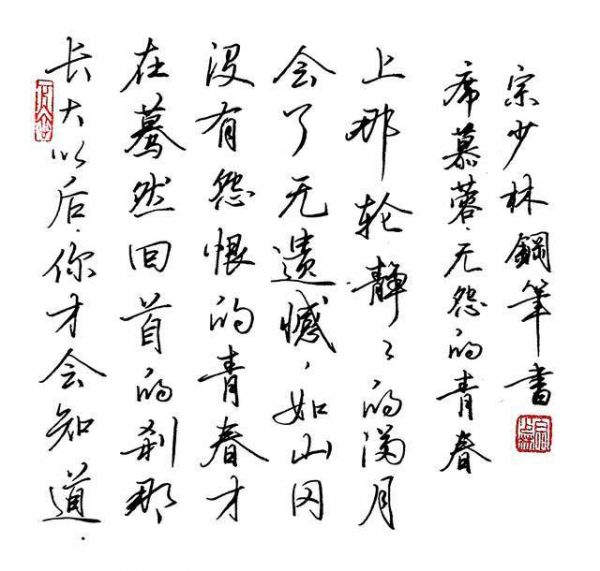 长大以后，你才会知道，
在蓦然回首的刹那
没有怨恨的青春才
会了无遗憾，如山冈
上那轮静々的满月
席慕蓉·无怨的青春
宗少林鋼筆書